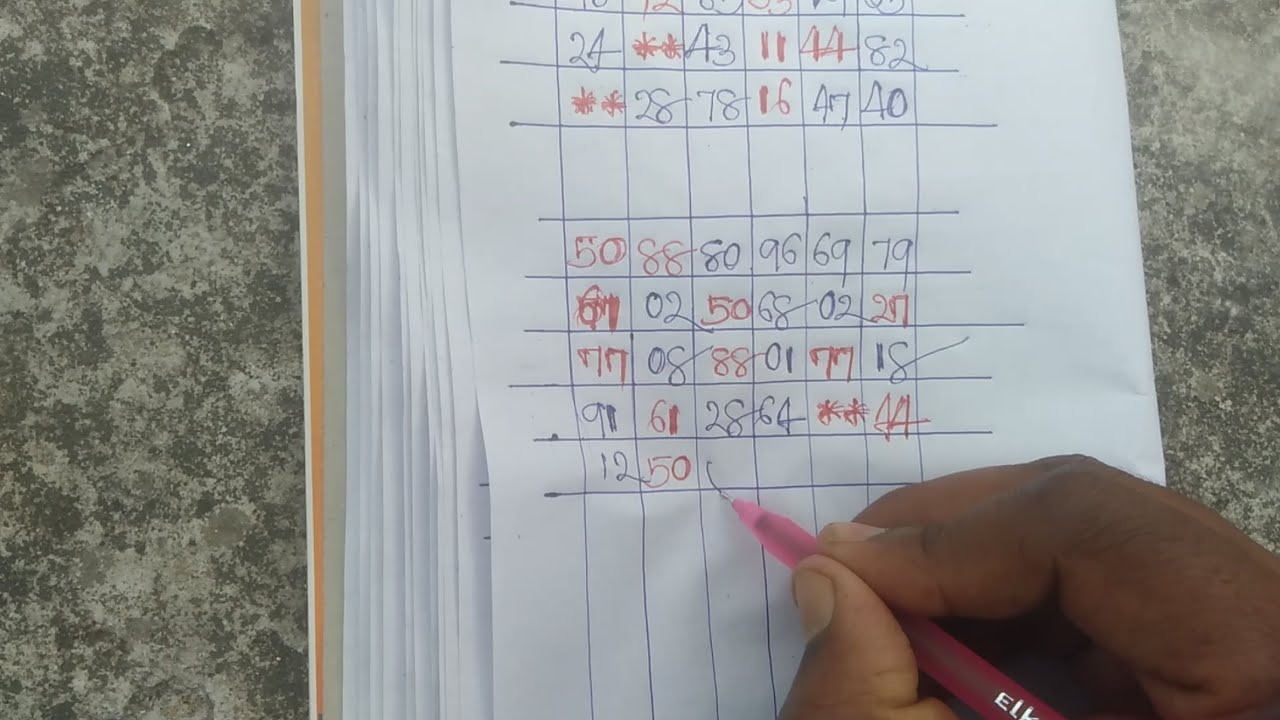 24 ** 43 11 44 82
** 28 78 16 47 40
50 88 80 96 69 79
02 50 68 02 27
77 08 88 01 77 18
91 61 28 64 ** 44
12 50
Elk